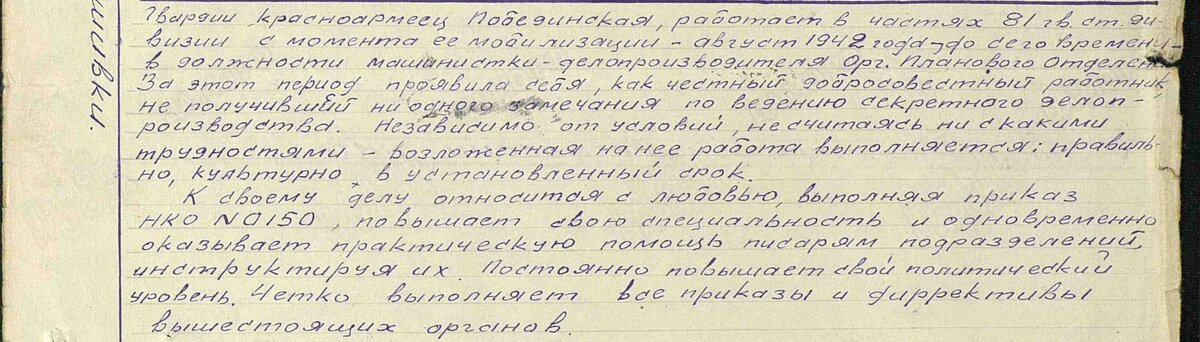 Гвардии красноармеец Побединская, работает в частях 81 гв. ст. ди-
визии с момента ее мобилизации - август 1942 года - до сего времени -
в должности машинистки - делопроизводителя Орг. Планового Отделен.
За этот период проявила себя, как честный добросовестный работник,
не получивший ни одного замечания по ведению секретного делоп-
роизводства. Независимо от условий, не считаясь ни с какими
трудностями - возложенная на нее работа выполняется: правиль-
но, культурно, в установленный срок.
К своему делу относится с любовью, выполняя приказ
НКО №0150, повышает свою специальность и одновременно
оказывает практическую помощь писарям подразделений,
инструктируя их. Постоянно повышает свой политический
уровень. Четко выполняет все приказы и диррективы
вышестоящих органов.